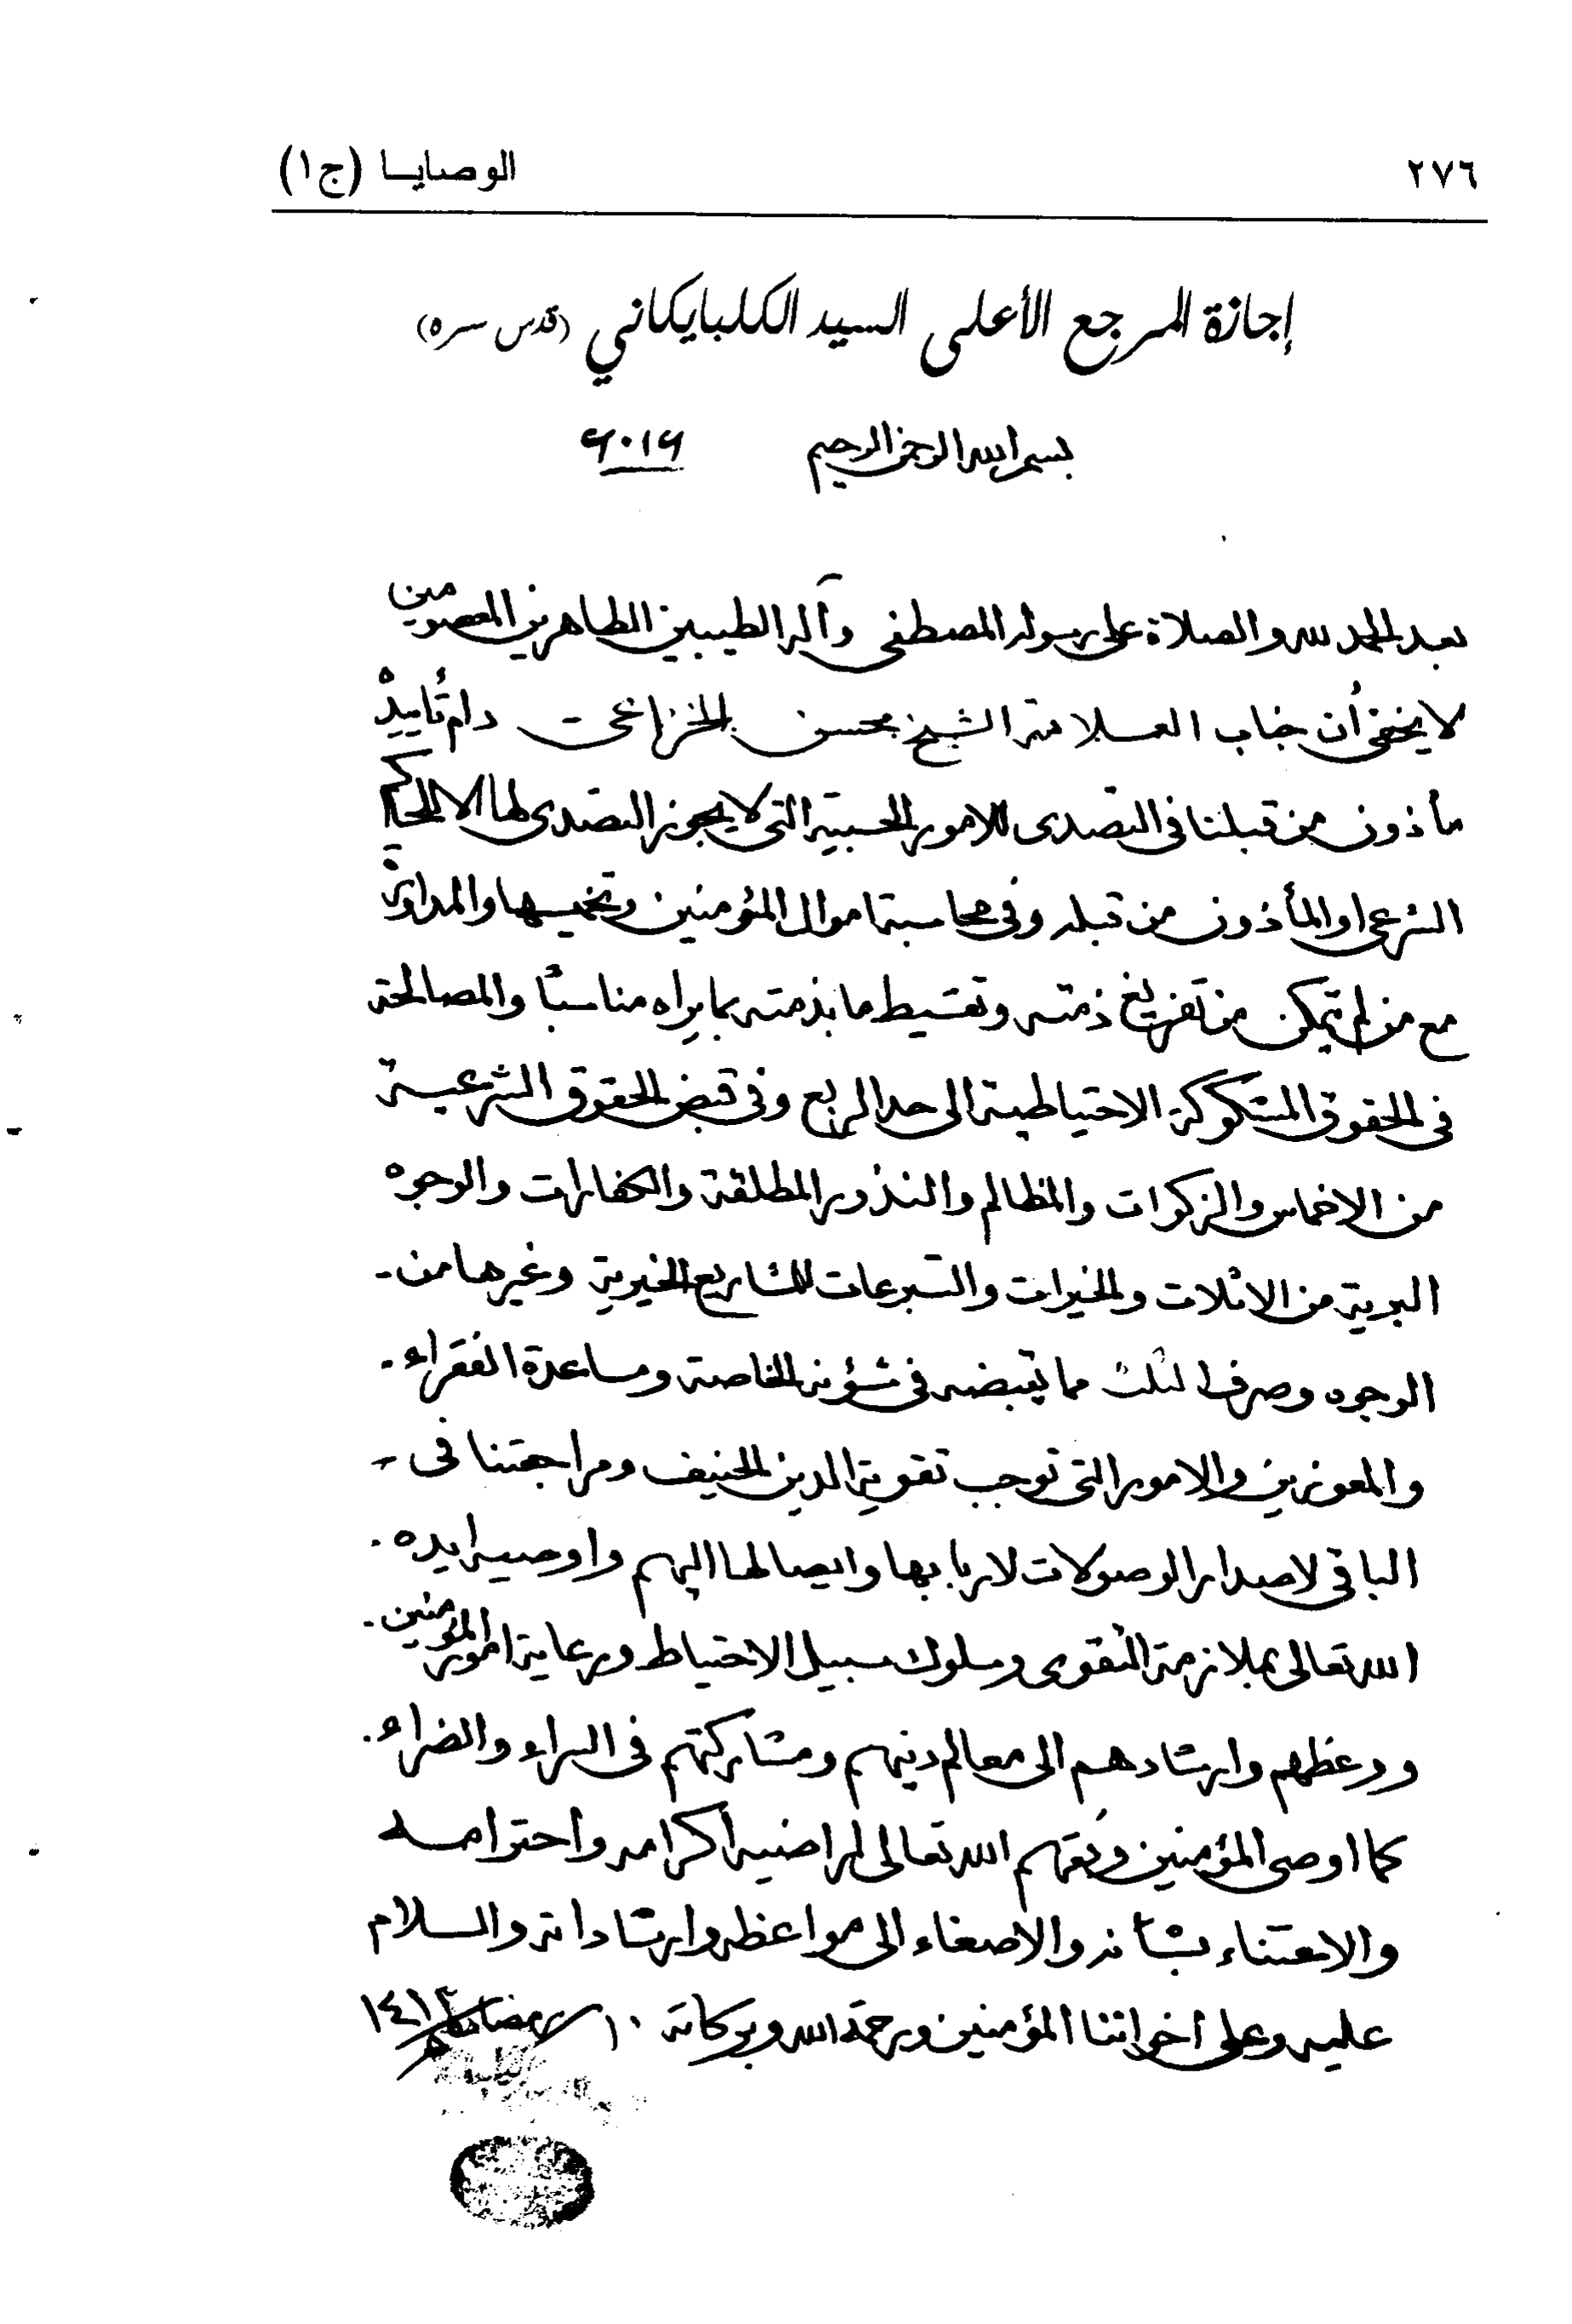 ٢٧٦ الوصايا (ج١)
إجازة المرجع الأعلى السيد الكلبايكاني (قدس سره)
بسم الله الرحمن الرحيم ٦٠١٦
بعد الحمد لله والصلاة على رسوله المصطفى وآله الطيبين الطاهرين المعصومين
لا يخفى أن جناب العلامة الشيخ محسن الخزاعي دام تأييده
مأذون من قبلنا في التصدي للامور الحسبية التي لا يجوز التصدي لها الا للحاكم
الشرعي او المأذون من قبله وفي محاسبة اموال المؤمنين وتخميسها والمداورة
مع من لم يتمكن من تفريغ ذمته وتقسيط ما بذمته بما يراه مناسبًا والمصالحة
في الحقوق المشكوكة الاحتياطية الى حد الربع وفي قبض الحقوق الشرعية
من الاخماس والزكوات والمظالم والنذور المطلقة والكفارات والوجوه
البرية من الاثلاث والخيرات والتبرعات للمشاريع الخيرية وغيرها من
الوجوه وصرف الثلث مما يقبضه في شؤونه الخاصة ومساعدة الفقراء
والمعوزين والامور التي توجب تقوية الدين الحنيف ومراجعتنا في
الباقي لاصدار الوصولات لاربابها وايصالها اليهم واوصيه ايده
الله تعالى بملازمة التقوى وسلوك سبيل الاحتياط ورعاية امور المؤمنين
ووعظهم وارشادهم الى معالم دينهم ومشاركتهم في السراء والضراء
كما اوصي المؤمنين وفقهم الله تعالى لمراضيه أكرامه واحترامه
والاعتناء بشأنه والاصغاء الى مواعظه وارشاداته والسلام
عليه وعلى اخواننا المؤمنين ورحمة الله وبركاته ١٠ رمضان ١٤١٣